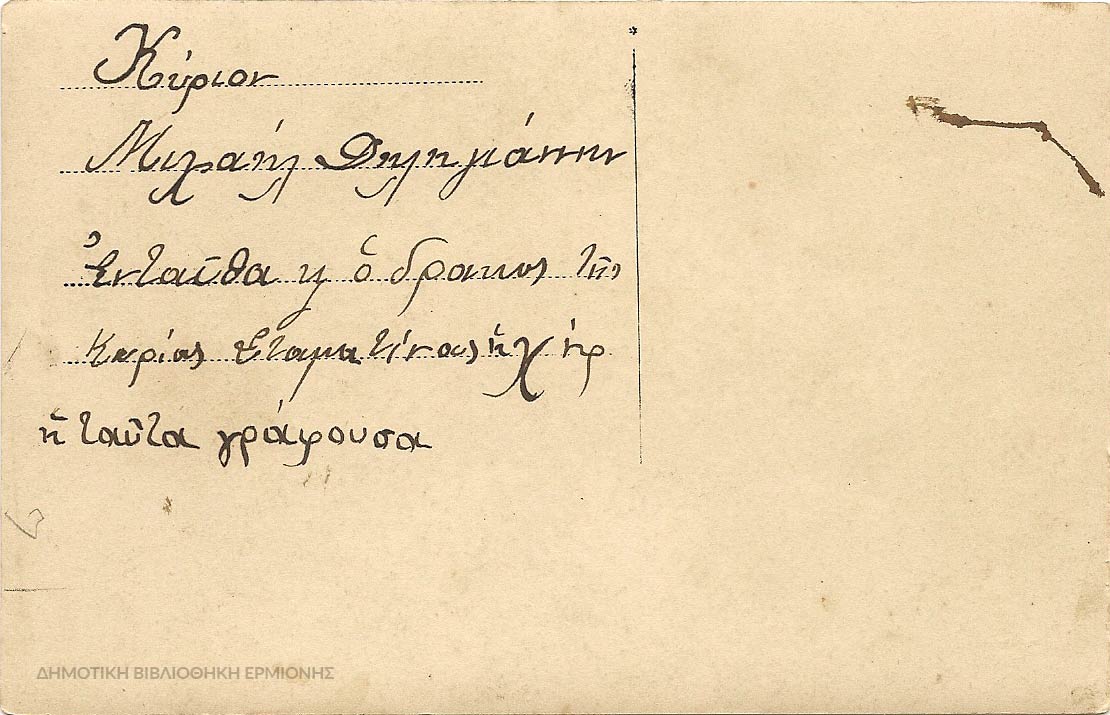 Κύριον
Μιχαήλ Δεληγιάννην
Ἐνταῦθα κ ὁ δρακος τῆς
Κυρίας Σταματίνας ἡ χήρ
ἡ ταῦτα γράφουσα
ΔΗΜΟΤΙΚΗ ΒΙΒΛΙΟΘΗΚΗ ΕΡΜΙΟΝΗΣ